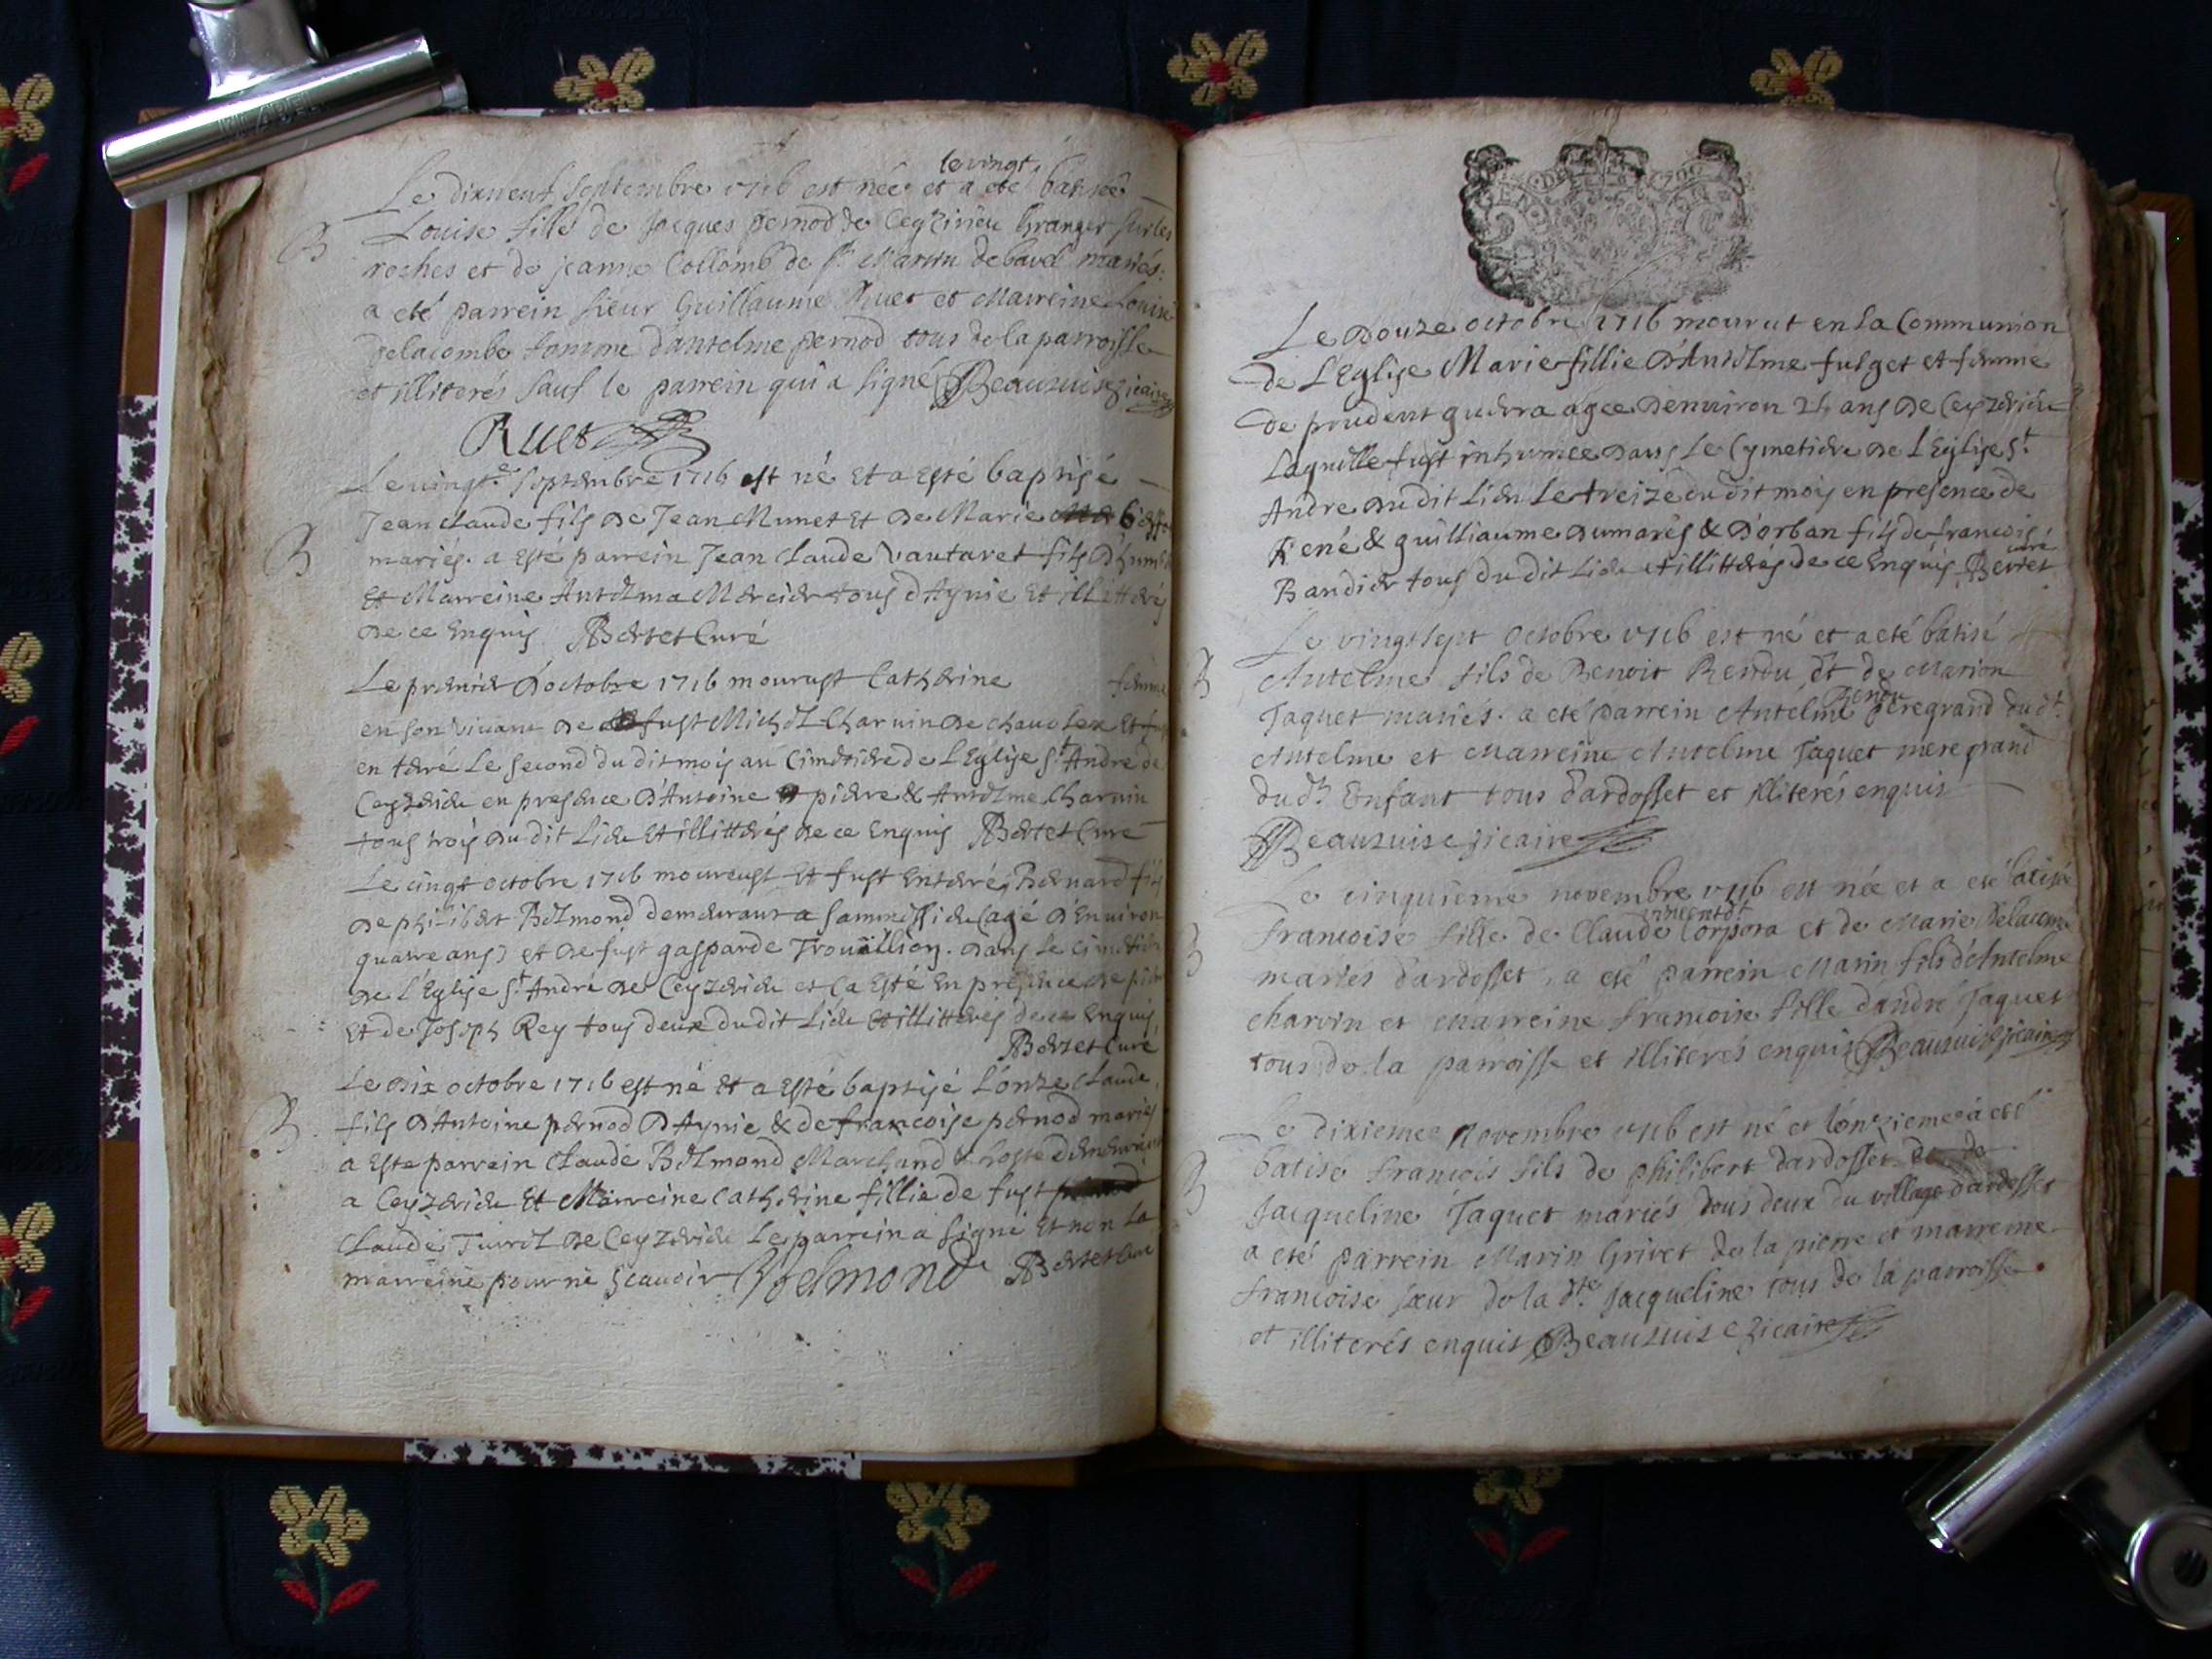 le vingt
Le dixneuf septembre 1716 est née et a eté batisée
B Louise fille de Jacques pernod de Ceyzirieu Granger sur les
roches et de jeanne Collomb de St. Martin de bavel mariés.
a eté parrein sieur Guillaume Ruet et Marreine Louise
delacombe femme d'antelme pernod tous de la parroisse
et illiterés sauf le parrein qui a signé Beauzuise vicaire
Ruet
Le vingte septembre 1716 est né Et a Esté baptisé
Jean claude fils de Jean Munet Et de Marie
B mariés. a Esté parrein Jean Claude Vautaret fils
Et Marreine Antelma Mercier tous d'Aynie Et illitterés
de ce Enquis Bertet Curé
Le premier d'octobre 1716 mourust Catherine femme
en son vivant de fust Michel Charvin de chavolex Et fust
en terré Le second du dit mois au Cimetiere de L'Eglise St André de
Ceyzerieu en presence d'Antoine pierre & Antelme Charvin
tous trois du dit Lieu Et illitterés de ce Enquis Bertet Curé
Le cinqt octobre 1716 moureust Et fust Enterré Bernard fils
de philibert Belmond demeurant a (agé d'Environ
quatre ans) et de fust gasparde Trouillion. dans Le cimetiere
de L'Eglise St André de Ceyzerieu et ça Esté En presence de pierre
Et de Joseph Rey tous deux du dit Lieu Et illitterés de ce Enquis
Bertet Curé
Le dix octobre 1716 est né Et a Esté baptisé L'onze claude
B fils d'Antoine pernod d'Aynie & de françoise pernod mariés
a Esté parrein claude Belmond Marchand & hoste demeurant
a Ceyzerieu Et Marreine Catherine fillie de fust
Claude Turrel de Ceyzerieu Le parrein a signé Et non La
marreine pour ne sçavoir Belmond Bertet Curé
GEN DE
Le douze octobre 1716 mourut en la Communion
de L'Eglise Marie fillie d'Antelme fulget et femme
de prudent guerra agee d'environ 24 ans de Ceyzerieu
Laquille fust inhumée dans Le Cymetiere de L'Eglise St
Andre du dit Lieu Le treize du dit mois en presence de
René & guilliaume Dumarês & d'orban fils de francois
Bandier tous du dit Lieu et illitterés de ce Enquis Bertet curé
Le vingt sept Octobre 1716 est né et a eté batisé
B Antelme fils de Benoit Rendu et de Marion
Jaquet mariés. a eté parrein Antelme Rendu pere grand du dt.
Antelme et Marreine Antelme Jaquet mere grand
du dt. Enfant tous d'ardosset et illiterés enquis
Beauzuise vicaire
Le cinquieme novembre 1716 est née et a eté batisée
francoise fille de Claude vincent dt Corpora et de Marie Delacombe
B mariés d'ardosset, a eté parrein Marin fils d'Antelme
charvin et marreine francoise fille d'andré Jaquet
tous de la parroisse et illiterés enquis Beauzuise vicaire
Le dixieme Novembre 1716 est né et l'onzieme a eté
B batisé francois fils de philibert dardosset et de
Jacqueline Jaquet mariés tous deux du village d'ardosset
a eté parrein Marin Grivet de la pierre et marreine
francoise sœur de la dte. Jacqueline tous de la parroisse
et illiterés enquis Beauzuise vicaire